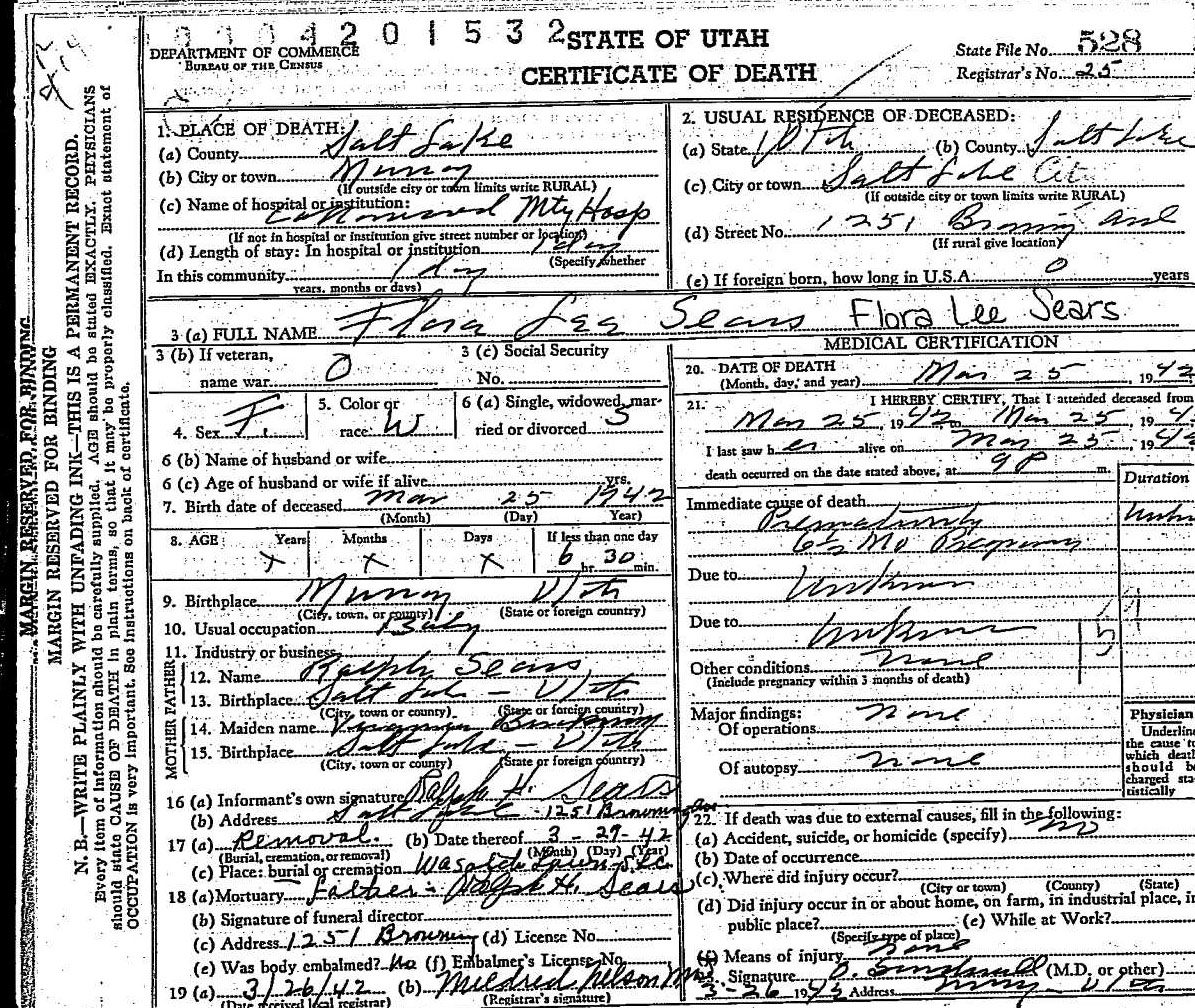 0 1 0 4 2 0 1 5 3 2
DEPARTMENT OF COMMERCE
BUREAU OF THE CENSUS
STATE OF UTAH
CERTIFICATE OF DEATH
State File No. 528
Registrar's No. 25
MARGIN RESERVED FOR BINDING
MARGIN RESERVED FOR BINDING
N. B.—WRITE PLAINLY WITH UNFADING INK—THIS IS A PERMANENT RECORD.
Every item of information should be carefully supplied. AGE should be stated EXACTLY. PHYSICIANS
should state CAUSE OF DEATH in plain terms, so that it may be properly classified. Exact statement of
OCCUPATION is very important. See instructions on back of certificate.
1. PLACE OF DEATH:
(a) County Salt Lake
(b) City or town Murray
(If outside city or town limits write RURAL)
(c) Name of hospital or institution:
Cottonwood Mty Hosp
(If not in hospital or institution give street number or location)
(d) Length of stay: In hospital or institution 1 day
(Specify whether
In this community 1 day
years, months or days)
2. USUAL RESIDENCE OF DECEASED:
(a) State Utah (b) County Salt Lake
(c) City or town Salt Lake City
(If outside city or town limits write RURAL)
(d) Street No. 1251 Browning Ave
(If rural give location)
(e) If foreign born, how long in U.S.A. 0 years
3 (a) FULL NAME Flora Lee Sears Flora Lee Sears
3 (b) If veteran,
name war 0
3 (c) Social Security
No.
4. Sex F.
5. Color or
race W
6 (a) Single, widowed, mar-
ried or divorced S
6 (b) Name of husband or wife
6 (c) Age of husband or wife if alive yrs.
7. Birth date of deceased Mar 25 1942
(Month) (Day) Year)
8. AGE Years Months Days If less than one day
x x x 6 hr. 30 min.
9. Birthplace Murray Utah
(City, town, or county) (State or foreign country)
10. Usual occupation Baby
11. Industry or business
FATHER
12. Name Ralph Sears
13. Birthplace Salt Lake – Utah
(City, town or county) (State or foreign country)
MOTHER
14. Maiden name
15. Birthplace Salt Lake – Utah
(City, town or county) (State or foreign country)
16 (a) Informant's own signature Ralph H. Sears
(b) Address Salt Lake - 1251 Browning Ave
17 (a) Removal (b) Date thereof 3-27-42
(Burial, cremation, or removal) (Month) (Day) (Year)
(c) Place: burial or cremation Wasatch Lawn S.L.C.
18 (a) Mortuary Father - Ralph H. Sears
(b) Signature of funeral director
(c) Address 1251 Browning (d) License No.
(e) Was body embalmed? No (f) Embalmer's License No.
19 (a) 3/26/42 (b) Mildred Nelson Mrs.
(Date received local registrar) (Registrar's signature)
MEDICAL CERTIFICATION
20. DATE OF DEATH
(Month, day, and year) Mar 25, 1942
21. I HEREBY CERTIFY, That I attended deceased from
Mar 25, 1942 Mar 25, 194
I last saw her alive on Mar 25, 1942
death occurred on the date stated above, at 9 P m.
Duration
Immediate cause of death
Prematurity
6½ Mo Pregnancy
Due to Unknown
Due to Unknown
159
Other conditions none
(Include pregnancy within 3 months of death)
Major findings:
Of operations none
Of autopsy none
Physician
Underline
the cause to
which death
should be
charged sta-
tistically
22. If death was due to external causes, fill in the following:
(a) Accident, suicide, or homicide (specify) no
(b) Date of occurrence
(c) Where did injury occur?
(City or town) (County) (State)
(d) Did injury occur in or about home, on farm, in industrial place, in
public place? (e) While at Work?
(Specify type of place)
(f) Means of injury none
Signature (M.D. or other)
3 26 1942 Address Murray - Utah